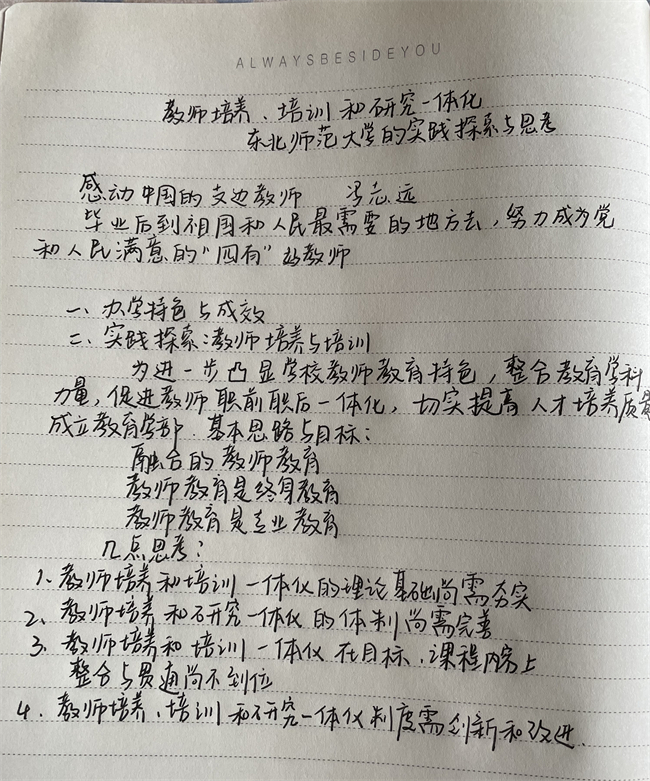 ALWAYSBESIDEYOU
教师培养、培训和研究一体化
东北师范大学的实践探索与思考
感动中国的支边教师 冯志远
毕业后到祖国和人民最需要的地方去，努力成为党
和人民满意的“四有”好教师
一、办学特色与成效
二、实践探索：教师培养与培训
为进一步凸显学校教师教育特色，整合教育学科
力量，促进教师职前职后一体化，切实提高人才培养质量
成立教育学部．基本思路与目标：
融合的教师教育
教师教育是终身教育
教师教育是专业教育
几点思考：
1、教师培养和培训一体化的理论基础尚需夯实
2、教师培养和研究一体化的体制尚需完善
3、教师培养和培训一体化在目标、课程内容上
整合与贯通尚不到位
4、教师培养、培训和研究一体化制度需创新和改进．